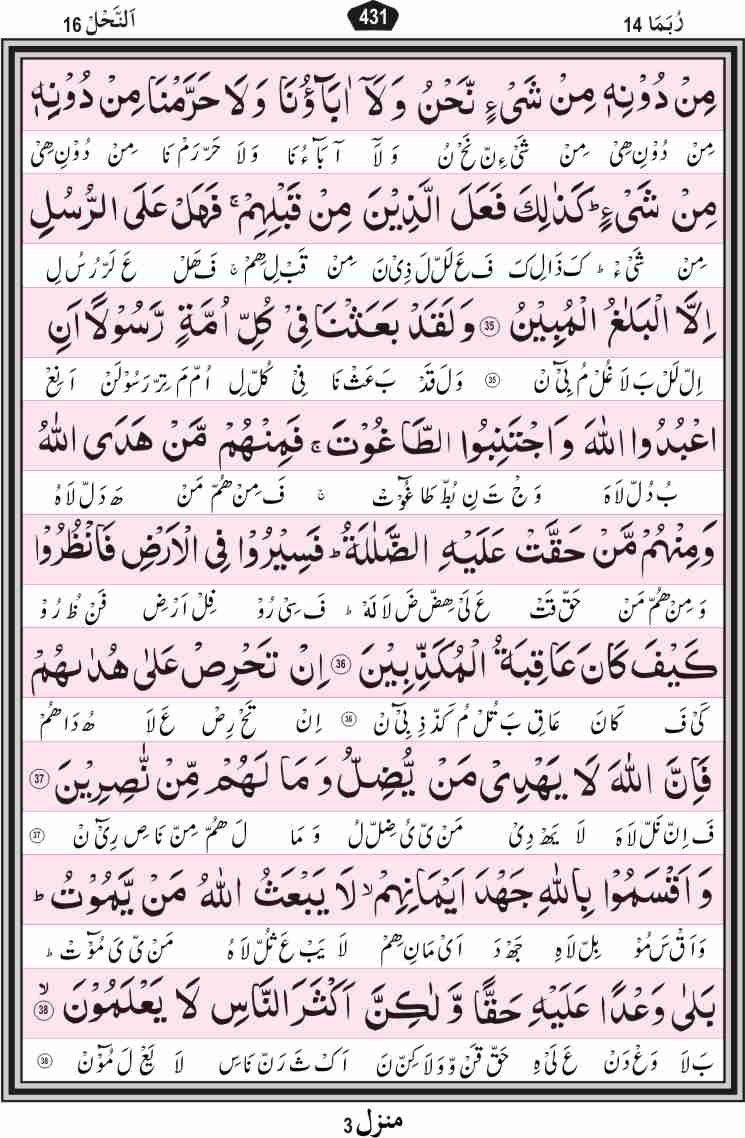 اَلنَّحْلُ 16
431
رُبَمَا 14
مِنْ دُوْنِهٖ مِنْ شَیْءٍ نَّحْنُ وَلَاۤ اٰبَآؤُنَا وَلَا حَرَّمْنَا مِنْ دُوْنِهٖ
مِنْ دُوْنِ هِیْ مِنْ شَیْ ءِ نّ نَحْ نُ وَ لَاۤ آ بَآ ءُ نَا وَ لَا حَرّ رَمْ نَا مِنْ دُوْنِ هِیْ
مِنْ شَیْءٍ ؕ كَذٰلِكَ فَعَلَ الَّذِیْنَ مِنْ قَبْلِهِمْ ۚ فَهَلْ عَلَی الرُّسُلِ
مِنْ شَیْ ءْ ؕ كَ ذَالِ كَ فَ عَ لَلّ لَ ذِیْ نَ مِنْ قَبْ لِ هِمْ ۚ فَ هَلْ عَ لَرّ رُ سُ لِ
اِلَّا الْبَلٰغُ الْمُبِیْنُ 35 وَلَقَدْ بَعَثْنَا فِیْ كُلِّ اُمَّةٍ رَّسُوْلًا اَنِ
اِلّ لَلْ بَ لَا غُلْ مُ بِیْٓ نْ 35 وَ لَ قَدْ بَ عَثْ نَا فِیْ كُلّ لِ اُمّ مَ تِرّ رَسُوْ لَنْ اَنِعْ
اعْبُدُوا اللّٰهَ وَاجْتَنِبُوا الطَّاغُوْتَ ۚ فَمِنْهُمْ مَّنْ هَدَی اللّٰهُ
بُ دُلّ لَا هَ وَ جْ تَ نِ بُطّ طَا غُوْٓ تْ ۚ فَ مِنْ هُمّ مَنْ هَ دَلّ لَا هُ
وَمِنْهُمْ مَّنْ حَقَّتْ عَلَیْهِ الضَّلٰلَةُ ؕ فَسِیْرُوْا فِی الْاَرْضِ فَانْظُرُوْا
وَ مِنْ هُمّ مَنْ حَقّ قَتْ عَ لَیْ هِضّ ضَ لَا لَهْ ؕ فَ سِیْ رُوْ فِلْ اَرْ ضِ فَنْ ظُ رُوْ
كَیْفَ كَانَ عَاقِبَةُ الْمُكَذِّبِیْنَ 36 اِنْ تَحْرِصْ عَلٰی هُدٰىهُمْ
كَیْ فَ كَانَ عَاقِ بَ تُلْ مُ كَذّ ذِ بِیْٓ نْ 36 اِنْ تَحْ رِصْ عَ لَا هُ دَا هُمْ
فَاِنَّ اللّٰهَ لَا یَهْدِیْ مَنْ یُّضِلُّ وَمَا لَهُمْ مِّنْ نّٰصِرِیْنَ 37
فَ اِنّ نَلّ لَا هَ لَا یَهْ دِیْ مَنْ یّ یُ ضِلّ لُ وَ مَا لَ هُمّ مِنّ نَا صِ رِیْٓ نْ 37
وَ اَقْسَمُوْا بِاللّٰهِ جَهْدَ اَیْمَانِهِمْ ۙ لَا یَبْعَثُ اللّٰهُ مَنْ یَّمُوْتُ ؕ
وَ اَقْ سَ مُوْ بِلّ لَا هِ جَهْ دَ اَیْ مَانِ هِمْ لَا یَبْ عَ ثُلّ لَا هُ مَنْ یّ یَ مُوْٓ تْ ؕ
بَلٰی وَعْدًا عَلَیْهِ حَقًّا وَّ لٰكِنَّ اَكْثَرَ النَّاسِ لَا یَعْلَمُوْنَ ۙ 38
بَ لَا وَ عْ دَنْ عَ لَیْ هِ حَقّ قَنْ وّ وَ لَا كِنّ نَ اَ كْ ثَ رَنّ نَاسِ لَا یَعْ لَ مُوْٓ نْ 38
منزل 3